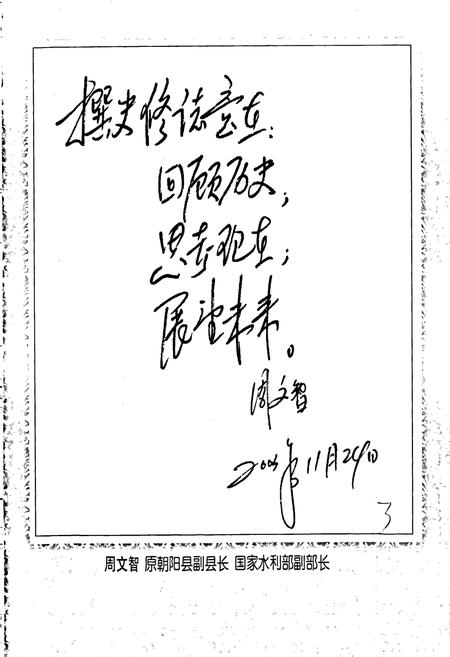 撰史修志意在：
回顾历史；
思考现在；
展望未来。
周文智
11月29日
3
周文智 原朝阳县副县长 国家水利部副部长